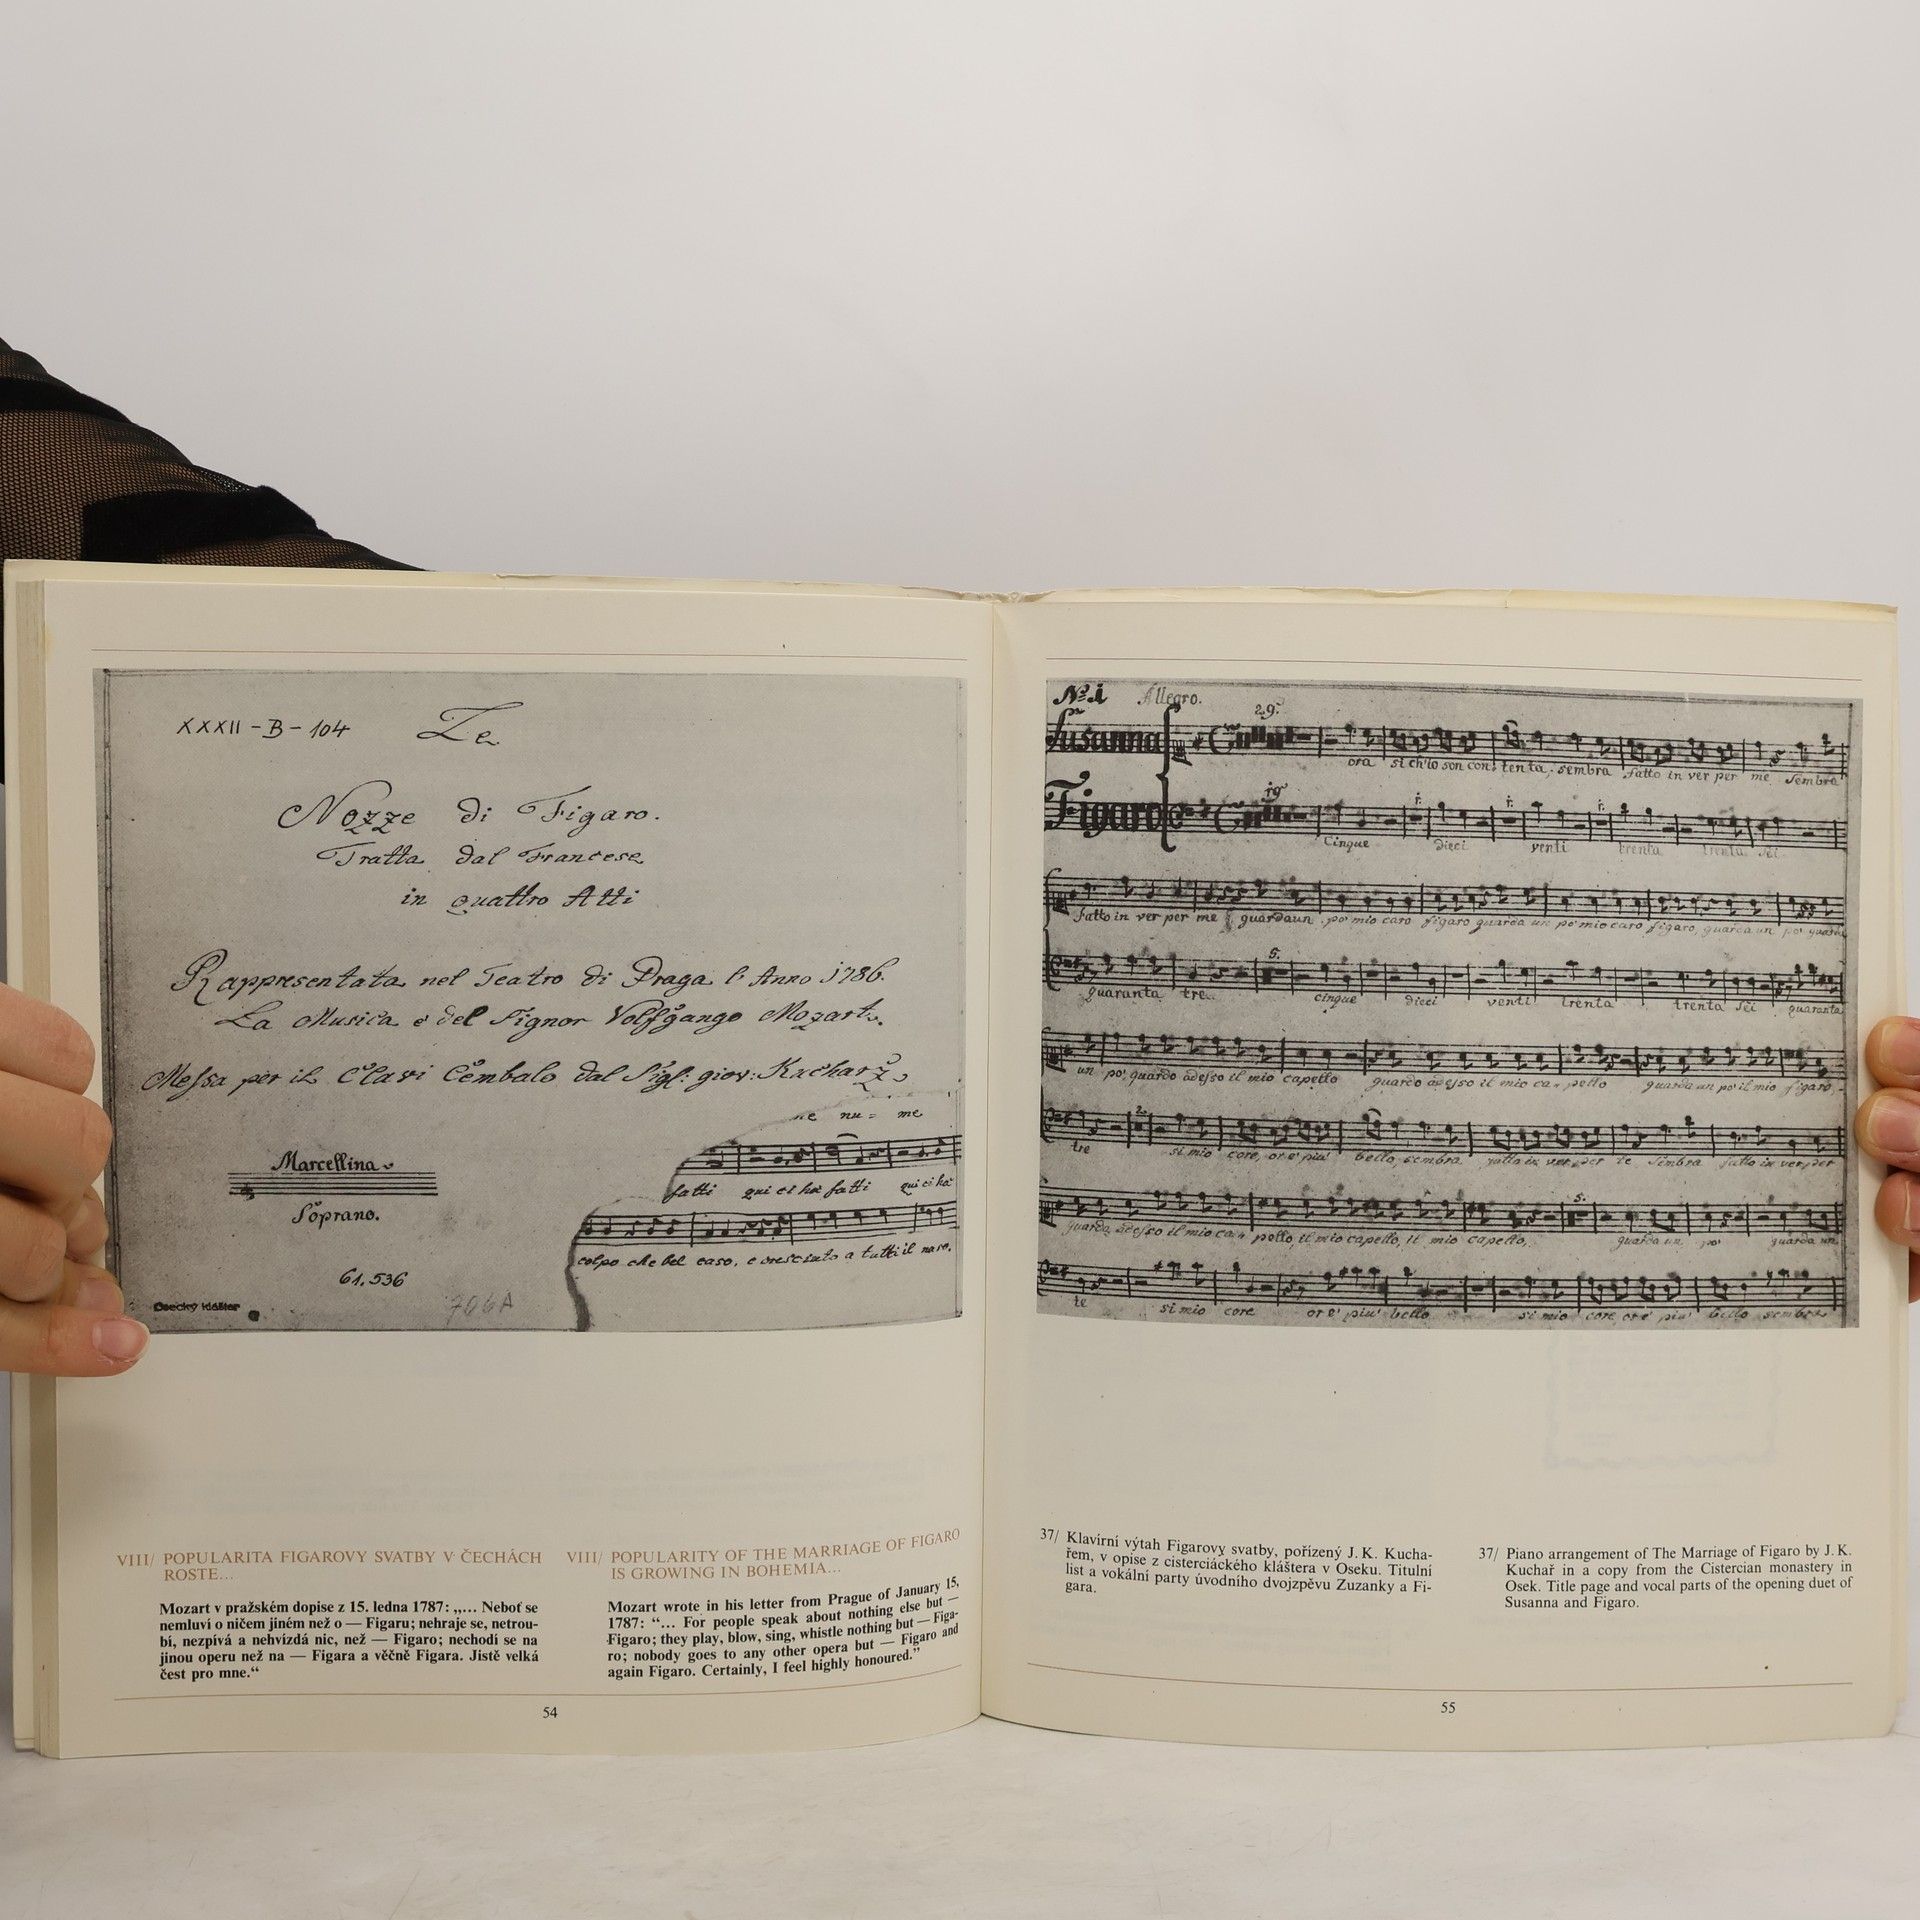 XXXII - B - 104
Le
Nozze di Figaro.
Tratta dal Francese
in quattro Atti
Rappresentata nel Teatro di Praga l'Anno 1786.
La Musica è del Signor Volfgango Mozart.
Messa per il Clavi Cembalo dal Sigl: giov: Kucharz
ne nu = me
Marcellina
fatti qui ci ha fatti qui ci ha
Soprano.
colpo che bel caso, e cresciuto a tutti il naso.
61.536
706A
Osecký klášter
VIII/ POPULARITA FIGAROVY SVATBY V ČECHÁCH
ROSTE...
Mozart v pražském dopise z 15. ledna 1787: „... Neboť se
nemluví o ničem jiném než o — Figaru; nehraje se, netrou-
bí, nezpívá a nehvízdá nic, než — Figaro; nechodí se na
jinou operu než na — Figara a věčně Figara. Jistě velká
čest pro mne.“
VIII/ POPULARITY OF THE MARRIAGE OF FIGARO
IS GROWING IN BOHEMIA...
Mozart wrote in his letter from Prague of January 15,
1787: “... For people speak about nothing else but —
Figaro; they play, blow, sing, whistle nothing but — Figa-
ro; nobody goes to any other opera but — Figaro and
again Figaro. Certainly, I feel highly honoured.”
54
No. 1 Allegro.
29.
Susanna
ora si ch'io son contenta, sembra fatto in ver per me Sembra
19
Figaro
Cinque dieci venti trenta trenta sei
fatto in ver per me guarda un po' mio caro figaro guarda un po' mio caro figaro, guarda un po' guarda
5.
quaranta tre. cinque dieci venti trenta trenta sei quaranta
un po', guardo adesso il mio capello guardo adesso il mio ca= pello guarda un po' il mio figaro,
2.
tre si mio core, or e' piu' bello, sembra fatto in ver per te Sembra fatto in ver per
5.
guarda adesso il mio ca= pello, il mio capello, il mio capello, guarda un po' guarda un
te si mio core or e' piu' bello si mio core or e' piu' bello sembra
37/ Klavírní výtah Figarovy svatby, pořízený J. K. Kucha-
řem, v opise z cisterciáckého kláštera v Oseku. Titulní
list a vokální party úvodního dvojzpěvu Zuzanky a Fi-
gara.
37/ Piano arrangement of The Marriage of Figaro by J. K.
Kuchař in a copy from the Cistercian monastery in
Osek. Title page and vocal parts of the opening duet of
Susanna and Figaro.
55